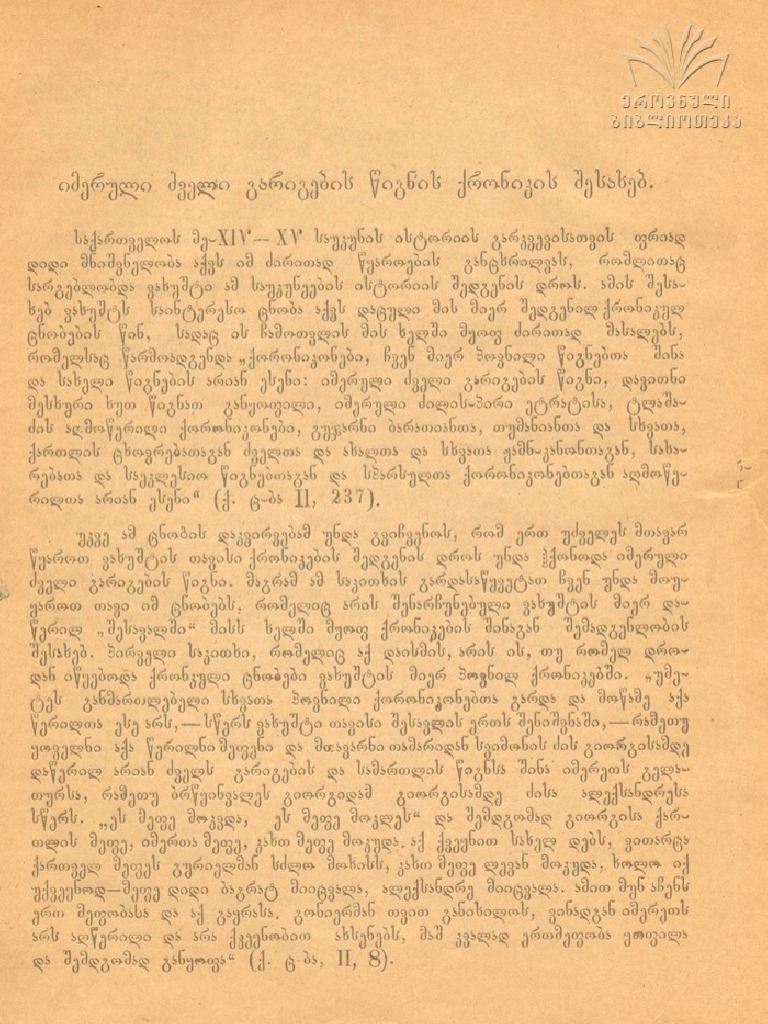 ეროვნული
ბიბლიოთეკა
იმერული ძველი გარიგების წიგნის ქრონიკის შესახებ.
საქართველოს მე-XIV—XV საუკუნის ისტორიის გარკვევისათვის ფრიად
დიდი მნიშვნელობა აქვს იმ ძირითად წყაროების განცხრილვას, რომლითაც
სარგებლობდა ვახუშტი ამ საუკუნეების ისტორიის შედგენის დროს. ამის შესა-
ხებ ვახუშტს საინტერესო ცნობა აქვს დაცული მის მიერ შედგენილ ქრონიკულ
ცნობების წინ, სადაც ის ჩამოთვლის მის ხელში მყოფ ძირითად მასალებს,
რომელსაც წარმოადგენდა „ქორონიკონები, ჩვენ მიერ პოვნილი წიგნებთა შინა
და სახელი წიგნების არიან ესენი: იმერული ძველი გარიგების წიგნი, დავითნი
მესხური ხუთ წიგნათ განყოფილი, იმერული ძილის-პირი ეტრატისა, ტლაშა-
ძის აღმოწერილი ქორონიკონები, გუჯარნი ბარათიანთა, თუმანიანთა და სხვათა,
ქართლის ცხოვრებათაგან ძველთა და ახალთა და სხვათა ჟამნ-კანონთაგან, სახა-
რებათა და საეკლესიო წიგნებთაგან და სპარსულთა ქორონიკონებთაგან აღმოწე-
რილთა არიან ესენი“ (ქ. ც-ბა II, 237).
უკვე ამ ცნობის დაკვირვებამ უნდა გვიჩვენოს, რომ ერთ უძველეს მთავარ
წყაროთ ვახუშტის თავისი ქრონიკების შედგენის დროს უნდა ჰქონოდა იმერული
ძველი გარიგების წიგნი. მაგრამ ამ საკითხის გარდასაწყვეტათ ჩვენ უნდა მოუ-
ყაროთ თავი იმ ცნობებს, რომელიც არის შენარჩუნებული ვახუშტის მიერ და-
წერილ „შესავალში“ მისს ხელში მყოფ ქრონიკების შინაგან შემადგენლობის
შესახებ. პირველი საკითხი, რომელიც აქ დაისმის, არის ის, თუ რომელ დრო-
დან იწყებოდა ქრონკული ცნობები ვახუშტის მიერ პოვნილ ქრონიკებში. „უმე-
ტეს განმართლებელი სხვათა პოვნილი ქორონიკონებთა გარდა და მოწამე აქა
წერილთა ესე არს,—სწერს ვახუშტი თავისი შესავლის ერთს შენიშვნაში,—რამეთუ
ყოველნი აქა წერილნი მეფენი და მთავარნი თამარიდან სვიმონის ძის გიორგისამდე
დაწერილ არიან ძველს გარიგების და სამართლის წიგნსა შინა იმერეთს გელა-
თურსა, რამეთუ ბრწყინვალეს გიორგიდამ გიორგისამდე ძისა ალექსანდრესა
სწერს. „ეს მეფე მოკვდა, ეს მეფე მოკლეს“ და შემდგომად გიორგისა ქარ-
თლის მეფე, იმერთა მეფე, კახთ მეფე მოკუდა. აქ ქვევნით სახელ დებს, ვითარცა
ქართველ მეფეს გურიელმან სძლო მოხისს, კახთ მეფე ლევან მოკუდა, ხოლო იქ
უქვეყნოდ—მეფე დიდი ბაგრატ მიიცვალა, ალექსანდრე მიიცვალა. ამით მუნ აჩენს
ერთ მეფობასა და აქ გაყრასა. გონიერმან თვით განიხილოს, ვინადგან იმერეთს
არს აღწერილი და არა ქვეყნობით ახსენებს, მაშ კვალად ერთმეფობა ყოფილა
და შემდგომად განყოფა“ (ქ. ც-ბა, II, 8).